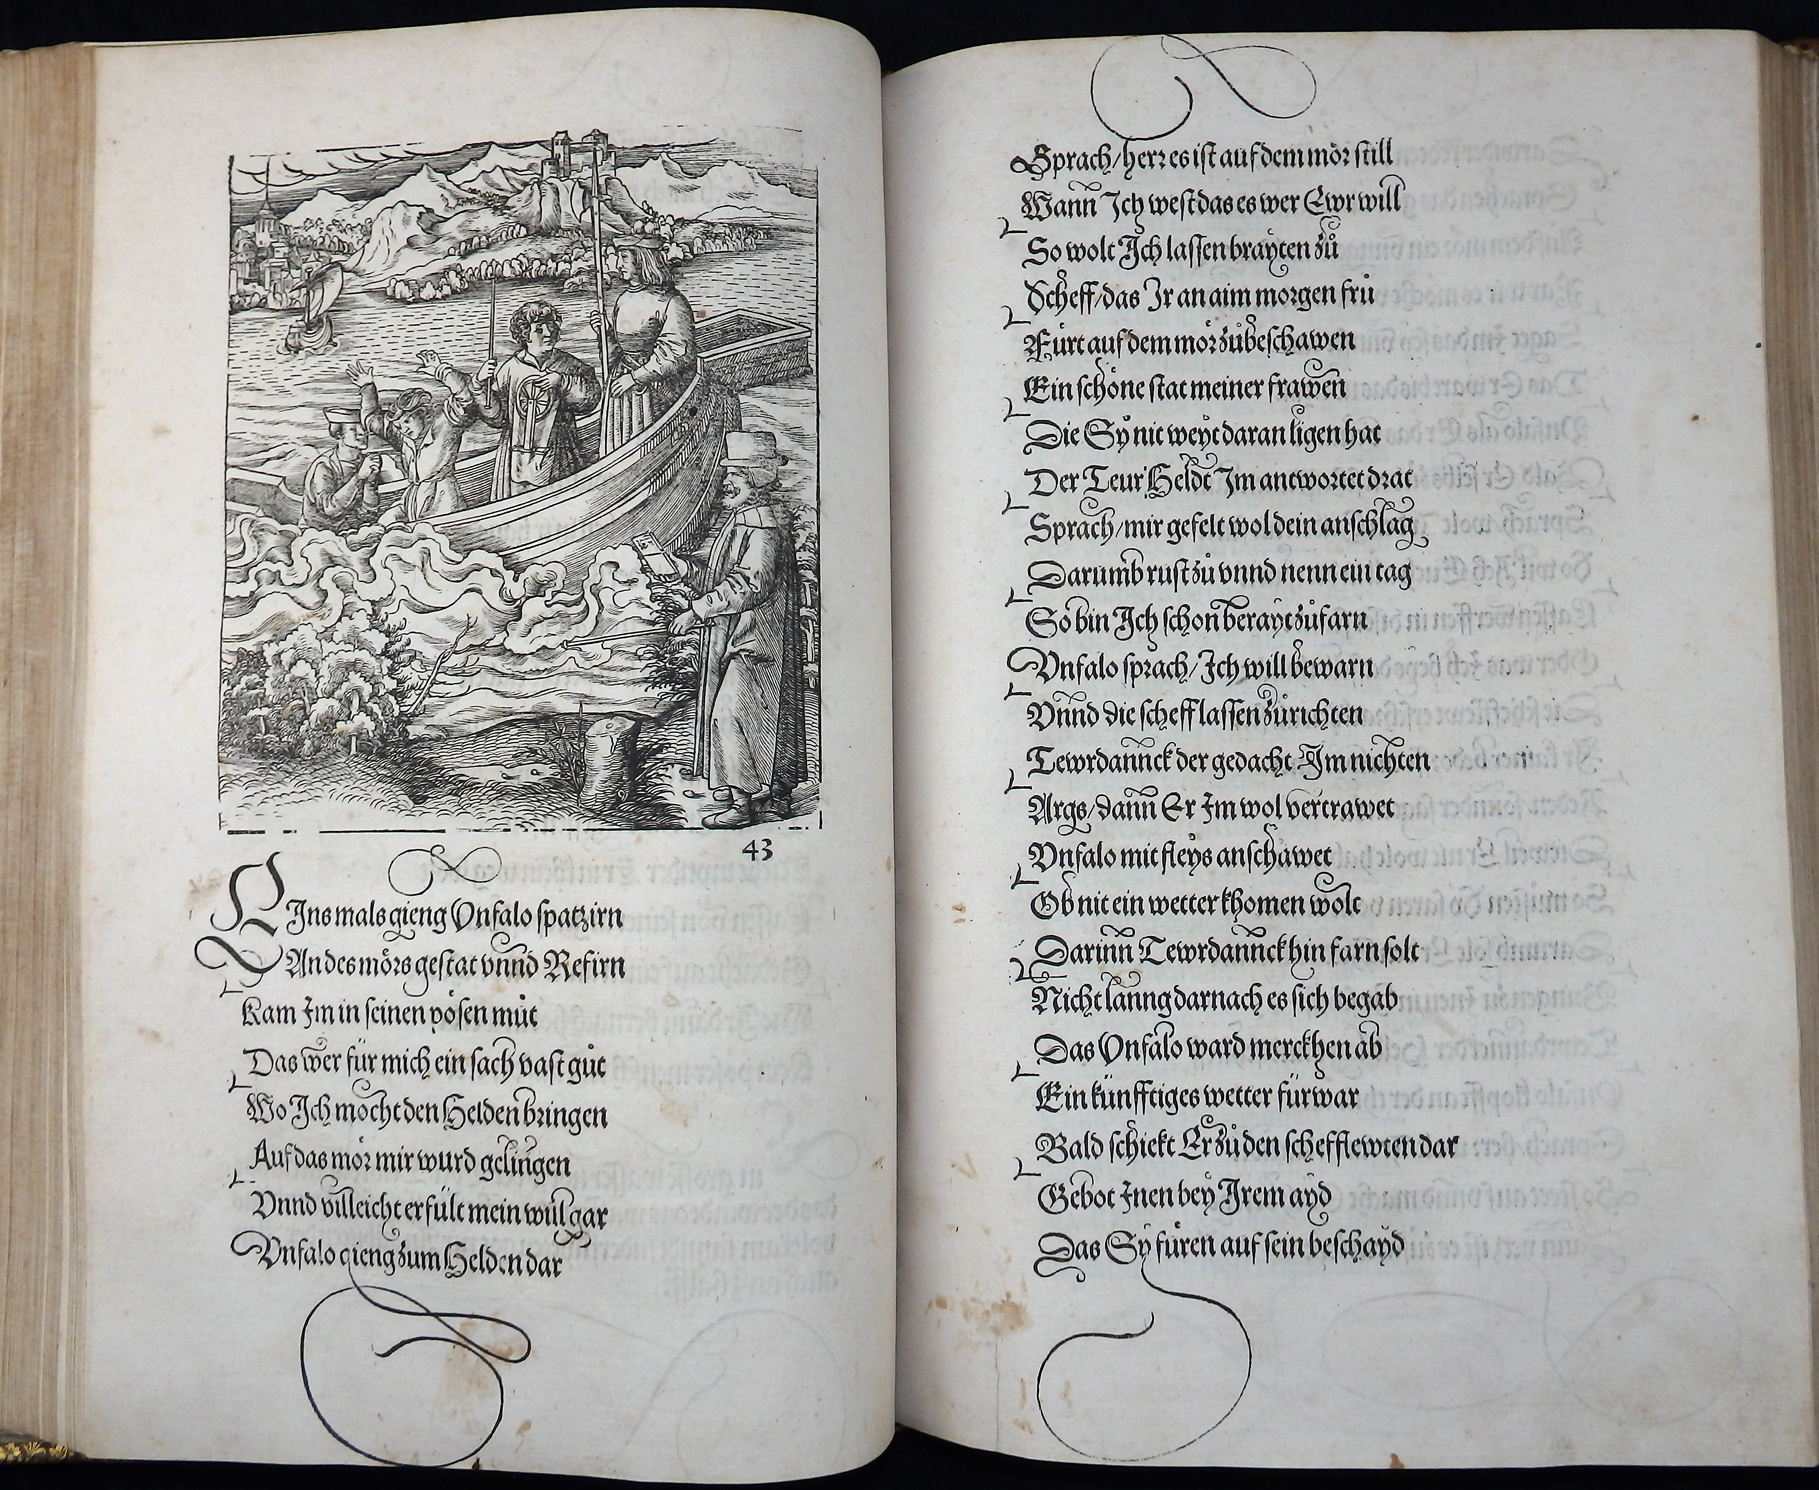 43
EIns mals gieng Vnfalo spatzirn
An des mörs gestat vnnd Refirn
Kam Im in seinen pösen müt
Das wer für mich ein sach vast güt
Wo Ich möcht den Helden bringen
Auf das mör mir wurd gelingen
Vnnd villeicht erfült mein wül gar
Vnfalo gieng zum Helden dar
Sprach/ herr es ist auf dem mör still
Wann Ich west das es wer Ewr will
So wolt Ich lassen brayten zů
Scheff/ das Ir an aim morgen frů
Fürt auf dem mör zůbeschawen
Ein schöne stat meiner frawen
Die Sy nit weyt daran ligen hat
Der Teur Heldt Im antwortet drat
Sprach/ mir gefelt wol dein anschlag
Darumb rust zů vnnd nenn ein tag
So bin Ich schon berayt zůfarn
Vnfalo sprach/ Ich will bewarn
Vnnd die scheff lassen zůrichten
Tewrdannck der gedacht Im nichten
Args/ dann Er Im wol vertrawet
Vnfalo mit fleys anschawet
Ob nit ein wetter khomen wolt
Darinn Tewrdannck hin farn solt
Nicht lanng darnach es sich begab
Das Vnfalo ward merckhen ab
Ein künfftiges wetter fürwar
Bald schickt Er zů den schefflewten dar
Gebot Inen bey Irem ayd
Das Sy füren auf sein beschayd